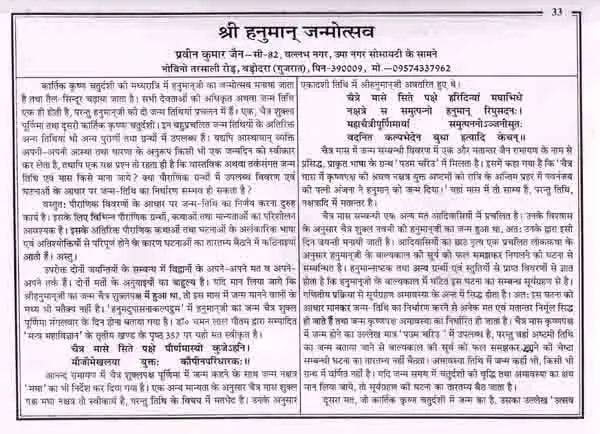 33
श्री हनुमान् जन्मोत्सव
प्रवीन कुमार जैन–सी-82, वल्लभ नगर, उमा नगर सोसायटी के सामने
भोविनो तरसाली रोड़, बड़ोदरा (गुजरात), पिन-390009, मो.–09574337962
कार्तिक कृष्ण चतुर्दशी की मध्यरात्रि में हनुमान्‌जी का जन्मोत्सव मनाया जाता
है तथा तैल-सिन्दूर चढ़ाया जाता है। सभी देवताओं की अधिकृत अथवा जन्म तिथि
एक ही होती है, परन्तु हनुमान्‌जी की दो जन्म तिथियां प्रचलन में हैं। एक, चैत्र शुक्ल
पूर्णिमा तथा दूसरी कार्तिक कृष्ण चतुर्दशी। इन बहुप्रचलित जन्म तिथियों के अतिरिक्त
अन्य तिथियां भी अन्य पुराणों तथा ग्रन्थों में उपलब्ध हैं। यद्यपि आस्थावान् व्यक्ति
अपनी-अपनी आस्था तथा धारणा के अनुरूप किसी भी एक जन्मदिन को स्वीकार
कर लेता है, तथापि एक यक्ष प्रश्न तो रहता ही है कि वास्तविक अथवा तर्कसंगत जन्म
तिथि एवं मास किसे माना जाये? क्या पौराणिक ग्रन्थों में उपलब्ध विवरण एवं
घटनाओं के आधार पर जन्म-तिथि का निर्धारण सम्भव हो सकता है?
वस्तुत: पौराणिक विवरणों के आधार पर जन्म-तिथि का निर्णय करना दुरुह
कार्य है। इसके लिए विभिन्न पौराणिक ग्रन्थों, कथाओं तथा मान्यताओं का परिशीलन
आवश्यक है। इसके अतिरिक्त पौराणिक कथाओं तथा घटनाओं के अलंकारिक भाषा
एवं अतिशयोक्तियों से परिपूर्ण होने के कारण घटनाओं का तारतम्य बैठाने में कठिनाइयां
आती हैं। अस्तु।
उपरोक्त दोनों जयन्तियों के सम्बन्ध में विद्वानों के अपने-अपने मत व अपने-
अपने तर्क हैं। दोनों मतों के अनुयाइयों का बाहुल्य है। यदि मान लिया जाये कि
श्रीहनुमान्‌जी का जन्म चैत्र शुक्लपक्ष में हुआ था, तो इस मास में जन्म मानने वालों के
मध्य भी मतैक्य नहीं है। 'हनुमदुपासनाकल्पद्रुम' में हनुमान्‌जी का जन्म चैत्र शुक्ल
पूर्णिमा मंगलवार के दिन होना बताया गया है। डॉ॰ चमन लाल गौतम द्वारा सम्पादित
'मन्त्र महाविज्ञान' के तृतीय खण्ड के पृष्ठ 352 पर यही मत स्वीकृत है।
चैत्रे मासे सिते पक्षे पौर्णमास्यां कुजेऽहनि।
मौंजीमेखलया युक्त: कौपीनपरिधारक:॥
आनन्द रामायण में चैत्र शुक्लपक्ष पूर्णिमा में जन्म कहने के साथ जन्म नक्षत्र
'मघा' का भी निर्देश कर दिया गया है। एक अन्य मान्यता के अनुसार चैत्र मास शुक्ल
पक्ष मघा नक्षत्र तो स्वीकार्य है, परन्तु तिथि के विषय में मतभेद है। उनके अनुसार
एकादशी तिथि में श्रीहनुमान्‌जी अवतरित हुए थे।
चैत्रे मासे सिते पक्षे हरिदिन्यां मघाभिधे
नक्षत्रे स समुत्पन्नो हनुमान् रिपुसूदन:।
महाचैत्रीपूर्णिमायां समुत्पन्नोऽञ्जनीसुत:
वदन्ति कल्पभेदेन बुधा इत्यादि केचन्॥
चैत्र मास में जन्म सम्बन्धी विवरण में एक और मतान्तर जैन रामायण के नाम से
प्रसिद्ध, प्राकृत भाषा के ग्रन्थ 'पउम चरिउ' में मिलता है। इसमें कहा गया है कि 'चैत्र
मास में कृष्णपक्ष की श्रवण नक्षत्र युक्त अष्टमी को रात्रि के अन्तिम प्रहर में पवनंजय
की पत्नी अंजना ने हनुमान् को जन्म दिया।' यहां मास में तो साम्य है, परन्तु तिथि,
नक्षत्रादि में मतान्तर है।
चैत्र मास सम्बन्धी एक अन्य मत आदिवासियों में प्रचलित है। उनके विश्वास
के अनुसार चैत्र शुक्ल नवमी को हनुमान्‌जी का जन्म हुआ था, अत: उनके द्वारा इसी
दिन जयन्ती मनायी जाती है। आदिवासियों का छाठ नृत्य एक प्रचलित लोककथा के
अनुसार हनुमान्‌जी के बाल्यकाल की सूर्य को फल समझकर निगलने की घटना से
सम्बन्धित है। हनुमान्नाटक तथा अन्य ग्रन्थों एवं स्तुतियों से प्राप्त विवरणों से ज्ञात
होता है कि हनुमान्‌जी के बाल्यकाल में घटित इस घटना का सम्बन्ध सूर्यग्रहण से है।
गणितीय प्रक्रिया से सूर्यग्रहण अमावस्या के अन्त में सिद्ध होता है। अत: इस घटना को
आधार मानकर जन्म-तिथि का निर्धारण करने से अनेक मत एवं मतान्तर निर्मूल सिद्ध
हो जाते हैं तथा जन्म कृष्णपक्ष अमावस्या को निर्धारित हो जाता है। चैत्र मास कृष्णपक्ष
में जन्म होने का उल्लेख मात्र 'पउम चरिउ' में उपलब्ध है, परन्तु वहां अष्टमी तिथि
का जन्म बताया जाने से बाल्यकाल की सूर्य को फल समझकर छूने की चेष्टा
सम्बन्धी घटना का तारतम्य नहीं बैठता। अमावस्या तिथि में जन्म कहीं भी, किसी भी
ग्रन्थ में वर्णित नहीं है। यदि जन्म समय में चतुर्दशी की वृद्धि तथा अमावस्या का क्षय
मान लिया जाये, तो सूर्यग्रहण की घटना का तारतम्य बैठ जाता है।
दूसरा मत, जो कार्तिक कृष्ण चतुर्दशी में जन्म का है, उसका उल्लेख 'उत्सव